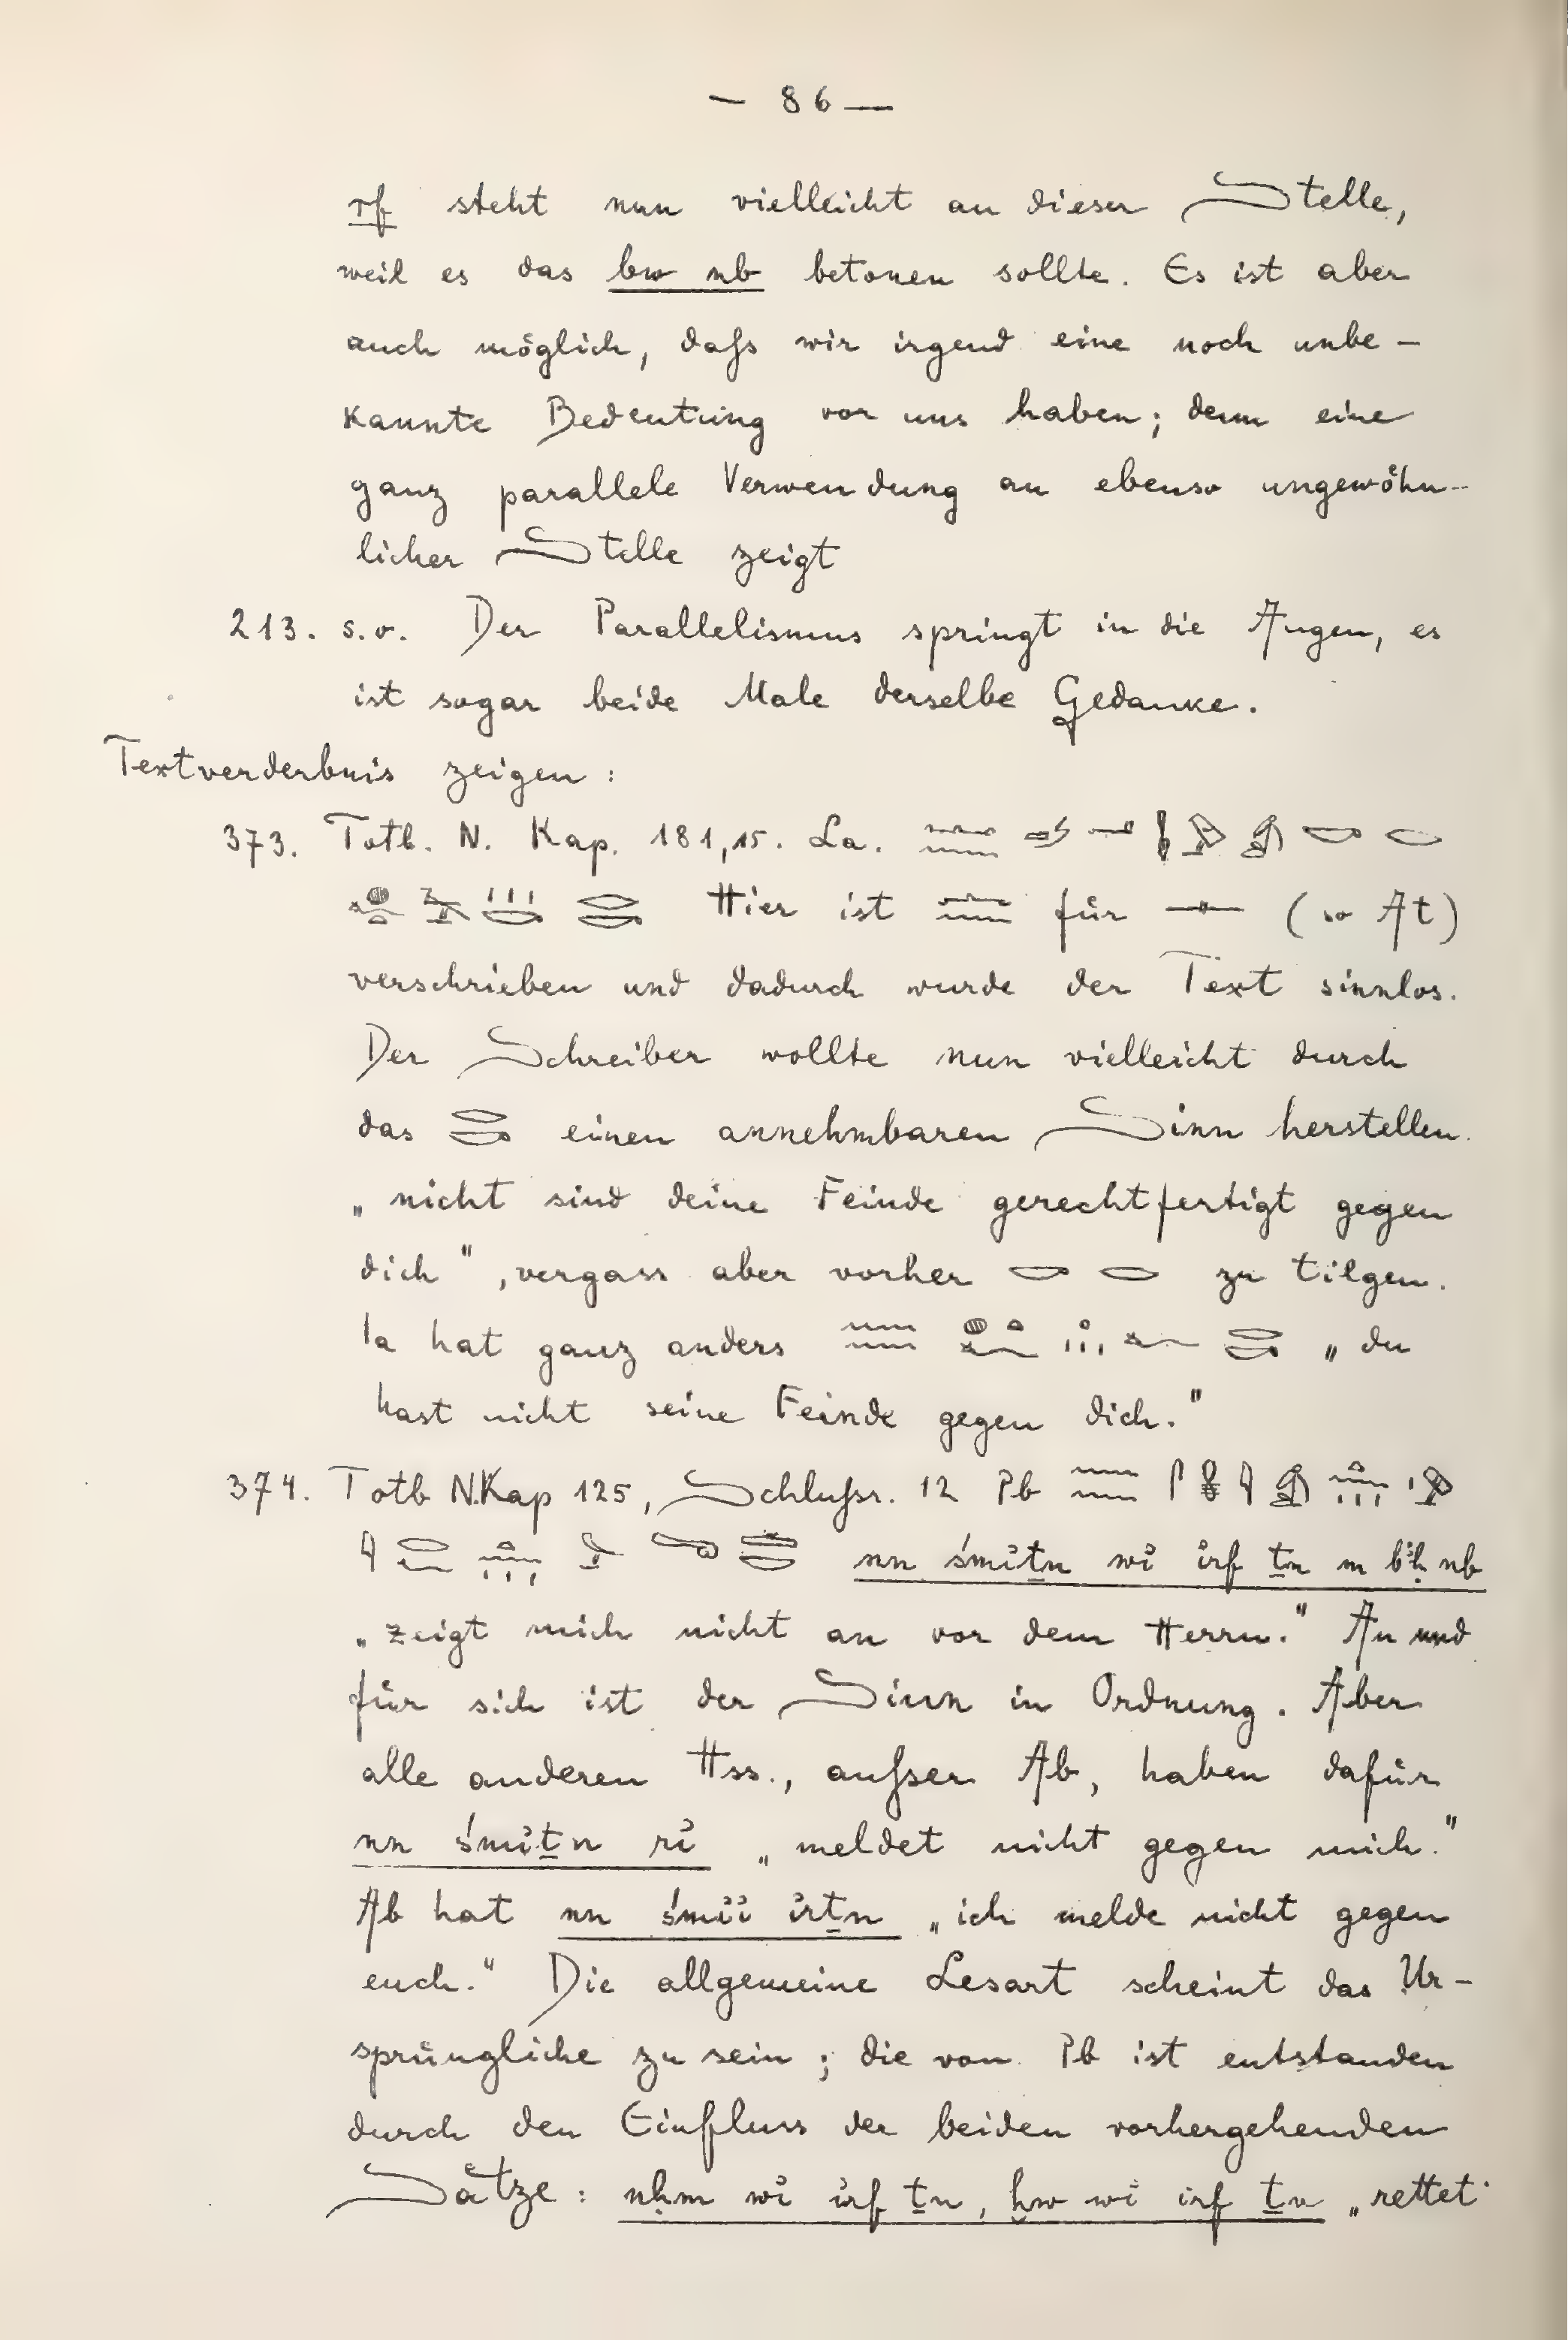 — 86 —
rf steht nun vielleicht an dieser Stelle,
weil es das bw nb betonen sollte. Es ist aber
auch möglich, daſs wir irgend eine noch unbe-
kannte Bedeutung vor uns haben; denn eine
ganz parallele Verwendung an ebenso ungewöhn-
licher Stelle zeigt
213. s.o. Der Parallelismus springt in die Augen, es
ist sogar beide Male derselbe Gedanke.
Textverderbnis zeigen:
373. Totb. N. Kap. 181,15. La.
Hier ist für (so At)
verschrieben und dadurch wurde der Text sinnlos.
Der Schreiber wollte nun vielleicht durch
das einen annehmbaren Sinn herstellen.
„nicht sind deine Feinde gerechtfertigt gegen
dich", vergass aber vorher zu tilgen.
Ia hat ganz anders „du
hast nicht seine Feinde gegen dich."
374. Totb N.Kap 125, Schluſsr. 12 Pb
nn śmi͗ṯn wi͗ i͗rf ṯn m bꜣḥ nb
„zeigt mich nicht an vor dem Herrn." An und
für sich ist der Sinn in Ordnung. Aber
alle anderen Hss., auſser Ab, haben dafür
nn śmi͗ṯn ri͗ „meldet nicht gegen mich."
Ab hat nn śmi͗i͗ i͗rṯn „ich melde nicht gegen
euch." Die allgemeine Lesart scheint das Ur-
sprüngliche zu sein; die von Pb ist entstanden
durch den Einfluss der beiden vorhergehenden
Sätze: nḥm wi͗ i͗rf ṯn, ḫw wi͗ i͗rf ṯn „rettet